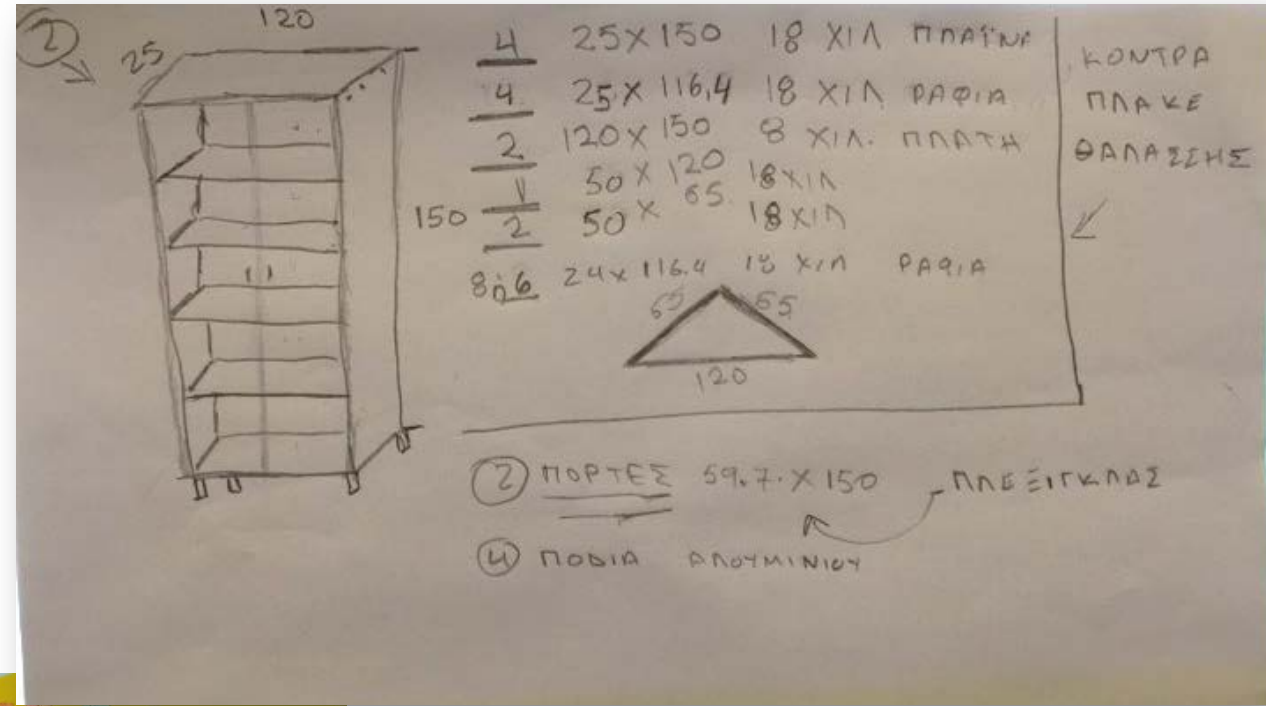 2
120
25
150
4 25X150 18 ΧΙΛ ΠΛΑΪΝΑ
4 25X116,4 18 ΧΙΛ ΡΑΦΙΑ
2 120X150 8 ΧΙΛ. ΠΛΑΤΗ
1 50X120 18ΧΙΛ
2 50X 65 18ΧΙΛ
8 ή 6 24X116.4 18 ΧΙΛ ΡΑΦΙΑ
65 65
120
ΚΟΝΤΡΑ
ΠΛΑΚΕ
ΘΑΛΑΣΣΗΣ
2 ΠΟΡΤΕΣ 59.7.X150 ΠΛΕΞΙΓΚΛΑΣ
4 ΠΟΔΙΑ ΑΛΟΥΜΙΝΙΟΥ